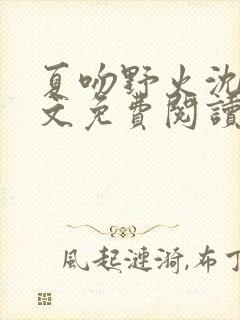 夏吻野火沈
文免費閱讀
風起漣漪,布丁